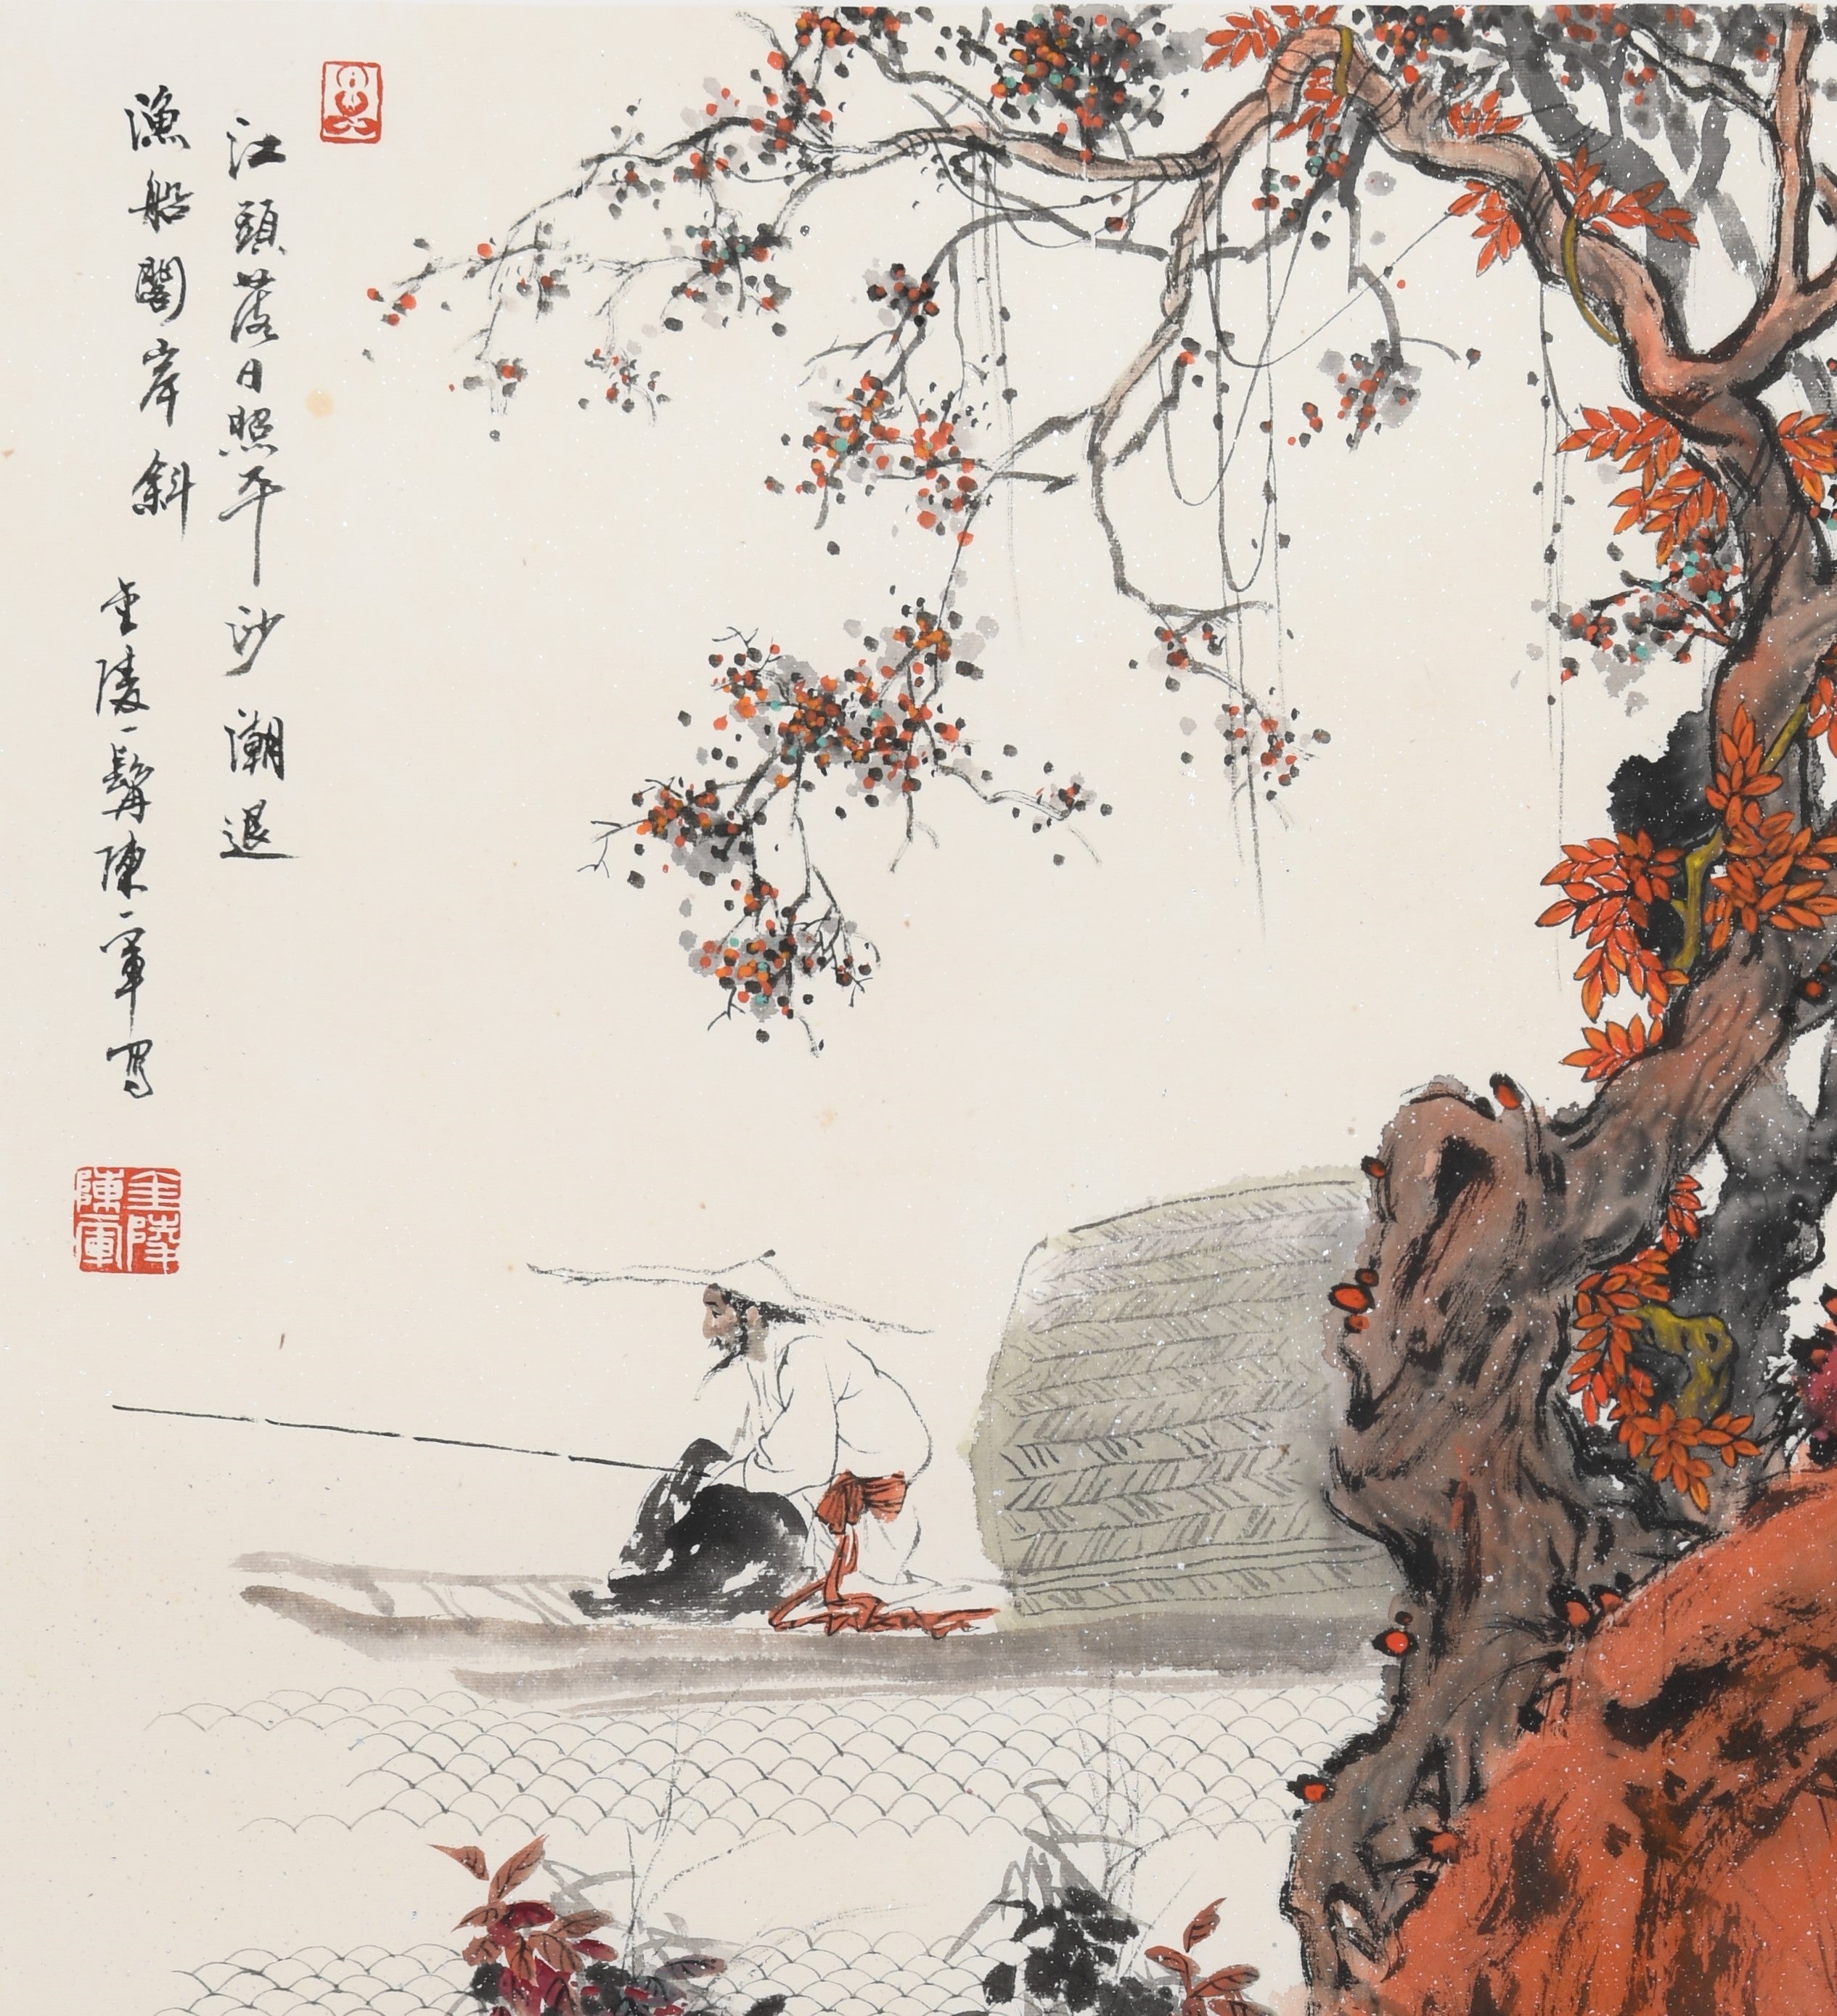 江頭落日照平沙潮退
漁船閣岸斜
金陵一髯陳軍寫
金陵陳軍